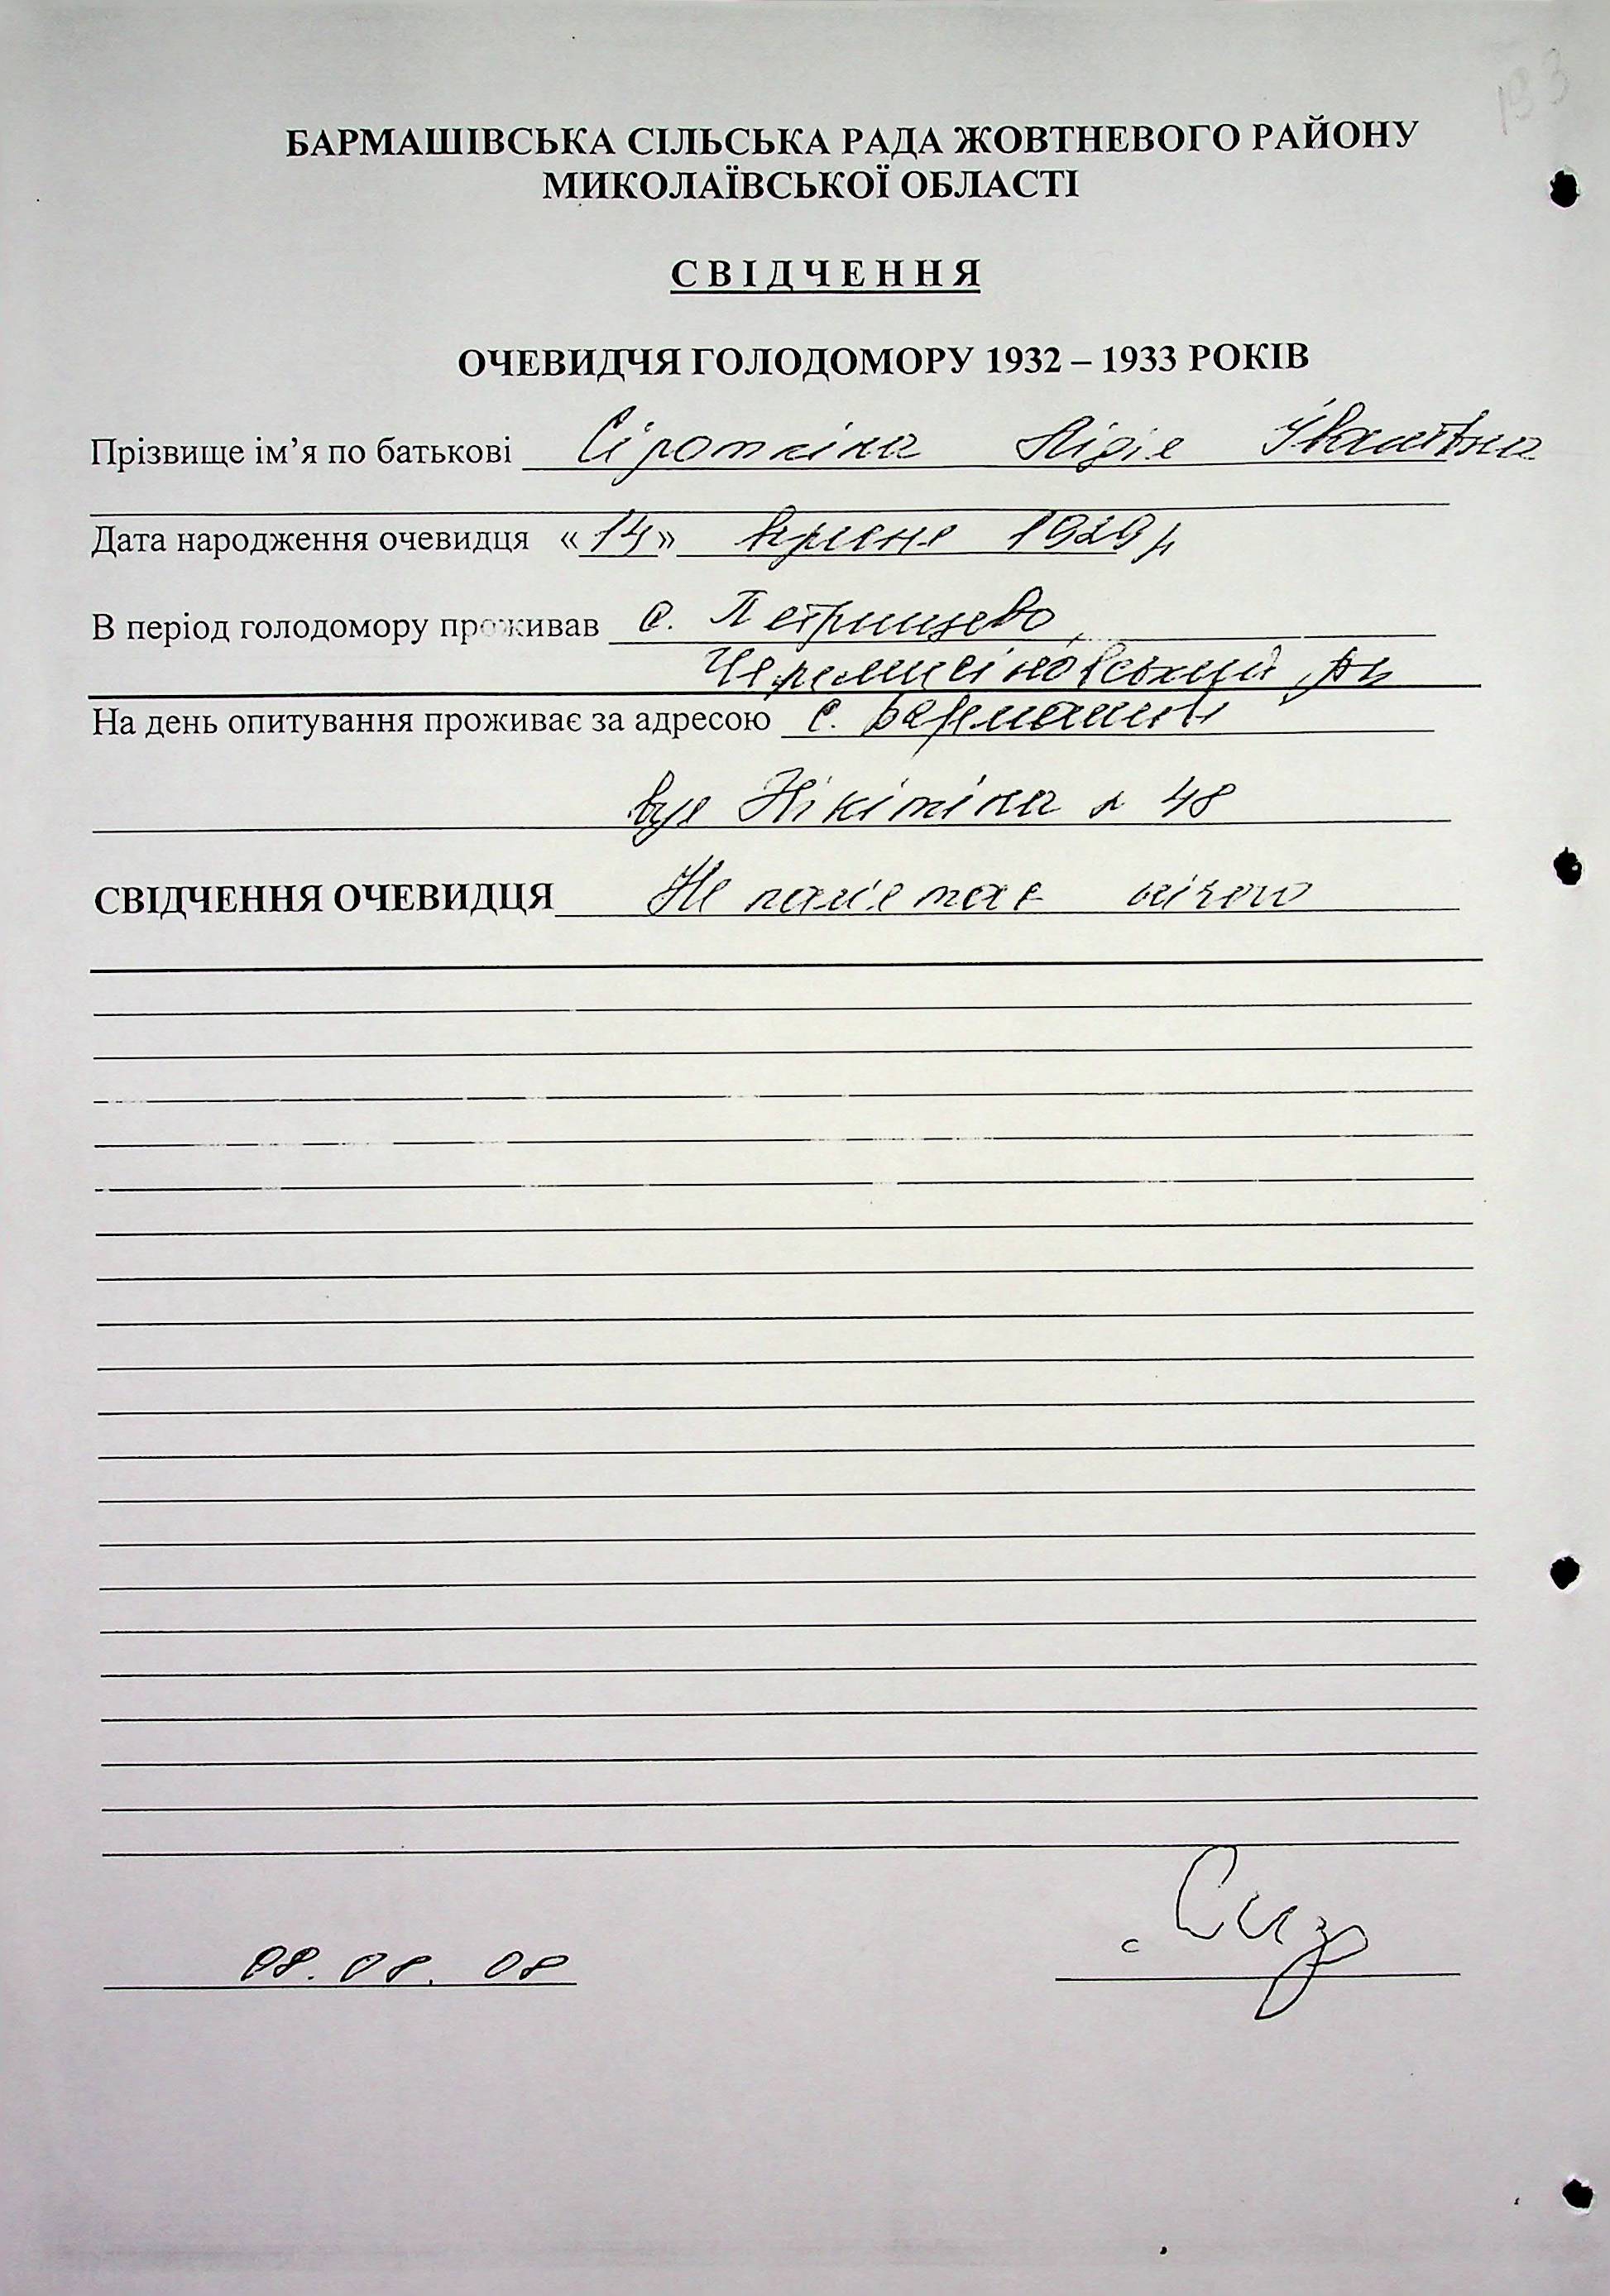 193
БАРМАШІВСЬКА СІЛЬСЬКА РАДА ЖОВТНЕВОГО РАЙОНУ
МИКОЛАЇВСЬКОЇ ОБЛАСТІ
СВІДЧЕННЯ
ОЧЕВИДЧЯ ГОЛОДОМОРУ 1932 – 1933 РОКІВ
Прізвище ім’я по батькові Сіроткіна Лідія Іванівна
Дата народження очевидця «14» червня 1929 р
В період голодомору проживав с. Петрищево,
Черемисіновський р-н
На день опитування проживає за адресою с. Бармашові
вул Нікітіна 48
СВІДЧЕННЯ ОЧЕВИДЦЯ Не пам'ятає нічого
08.08.08